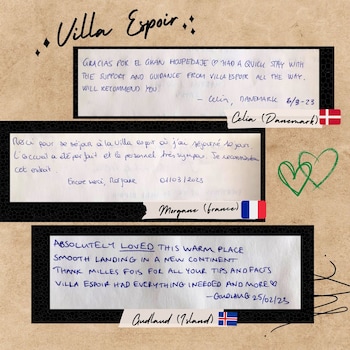 Villa Espoir
GRACIAS POR EL GRAN HOSPEDAJE ♡ HAD A QUICK STAY WITH
THE SUPPORT AND GUIDANCE FROM VILLA ESPOIR ALL THE WAY.
WILL RECOMMEND YOU!
- Celin, DANEMARK 6/9-23
Celia (Danemark)
Merci pour ce séjour à la villa espoir où j'ai séjourné
L'accueil a été parfait et le personnel très sympa. Je recommande
cet endroit.
Encore merci, Morgane 02/03/2023
Morgane (france)
ABSOLUTELY LOVED THIS WARM PLACE
SMOOTH LANDING IN A NEW CONTINENT
THANK MILLES FOIS FOR ALL YOUR TIPS AND FACTS
VILLA ESPOIR HAD EVERYTHING I NEEDED AND MORE ♡
- GUDLAUG 25/02/23
Gudlaud (Island)